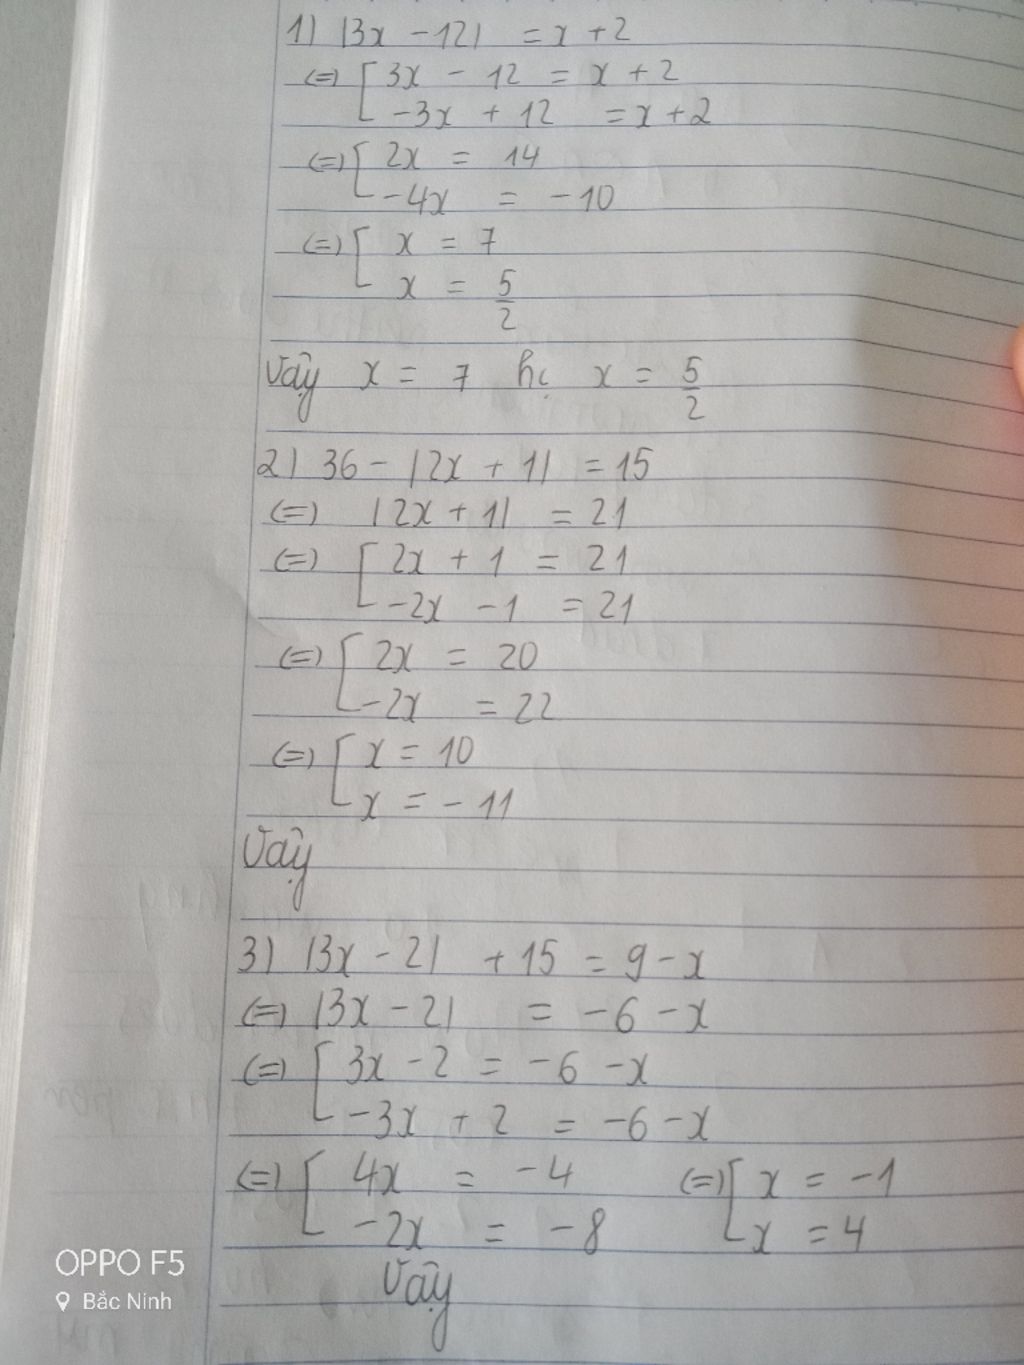 1) |3x - 12| = x + 2
(=) [ 3x - 12 = x + 2
-3x + 12 = x + 2
(=) [ 2x = 14
-4x = -10
(=) [ x = 7
x = 5/2
Vậy x = 7 hc x = 5/2
2) 36 - |2x + 1| = 15
(=) |2x + 1| = 21
(=) [ 2x + 1 = 21
-2x - 1 = 21
(=) [ 2x = 20
-2x = 22
(=) [ x = 10
x = -11
Vậy
3) |3x - 2| + 15 = 9 - x
(=) |3x - 2| = -6 - x
(=) [ 3x - 2 = -6 - x
-3x + 2 = -6 - x
(=) [ 4x = -4 (=) [ x = -1
-2x = -8 x = 4
Vậy
OPPO F5
Bắc Ninh